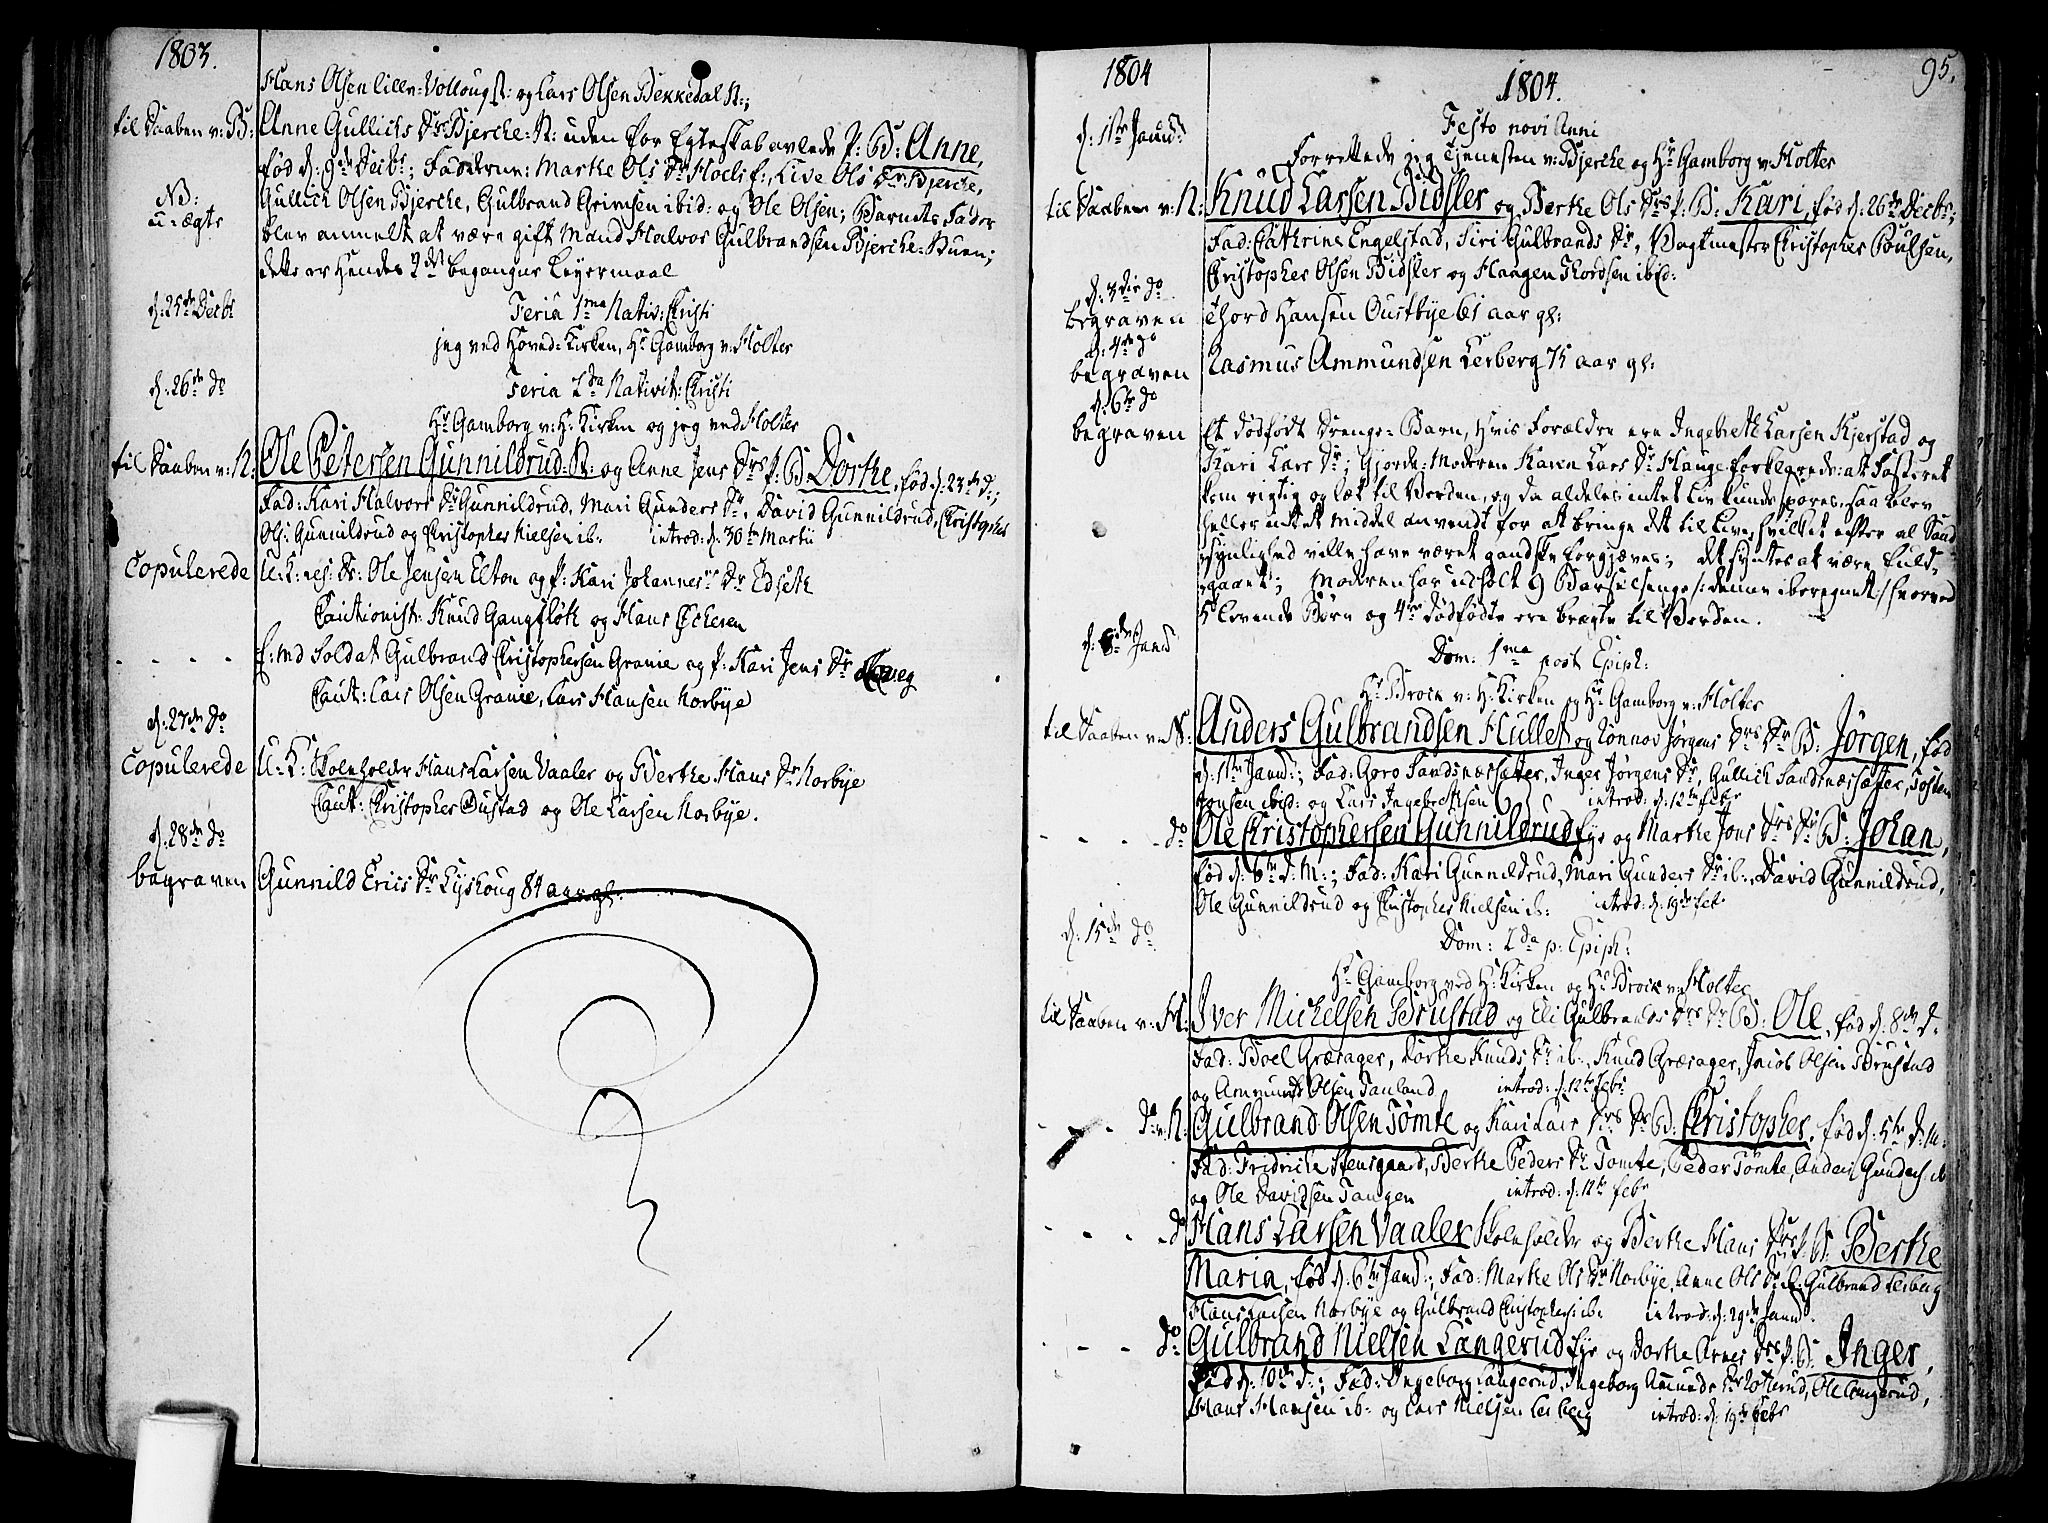 1803.
Hans Olsen lille-Volloug St: og Lars Olsen Bekkedal N:;
til Daaben v: B: Anne Gullichs Dr Bjerche: N: uden for Egteskab avlede p: B: Anne,
fød d: 9de Decbr; Faddere: Marthe Ols Dr Hoel f:, Live Ols Dr Bjerche,
NB: u-ægte Gullich Olsen Bjerche, Gulbrand Grimsen ibid: og Ole Olsen; Barnets Fader
blev anmelt at være gift Mand Halvor Gulbrandsen Bjerche-Buen;
dette er Hendes 2det begangne Leyermaal
d: 25de Decbr Feria 1ma Nativ: Christi
jeg ved Hoved-Kirken, Hr Gamborg v: Holter
d: 26de do Feria 2da Nativit: Christi
Hr Gamborg v: H: Kirken og jeg ved Holter
til Daaben v: N: Ole Petersen Gunnildrud: N: og Anne Jens Drs p: B: Dorthe, fød d: 23de d:;
Fad: Kari Halvors Dr Gunnildrud, Mari Gunders Dr, David Gunnildrud, Christopher
Ols: Gunnildrud og Christopher Nielsen ib: introd: d: 30te Martii
Copulerede U: K: res: Dr: Ole Jensen Elton og p: Kari Johannes Dr Edseth
Cautionist: Knud Gangfløth og Hans Echeren
- - - - f: md Soldat Gulbrand Christophersen Granie og p: Kari Jens Dr
Caut: Lars Olsen Granie, Lars Hansen Norbye
d: 27de do
Copulerede U: K: Skoleholder Hans Larsen Vaaler og Berthe Hans Dr Norbye
Caut: Christopher Dustad og Ole Larsen Norbye.
d: 28de do
begraven Gunnild Erics Dr Lyshoug 84 aar gl:
1804
95.
1804.
d: 1ste Janu: Festo novi Anni
Forrettede jeg Tjenesten v: Bjerche og Hr Gamborg v: Holter
til Daaben v: N: Knud Larsen Bidsler og Berthe Ols Drs p: B: Kari, fød d: 26te Decbr;
Fad: Cathrine Engelstad, Siri Gulbrands Dr, Vagtmester Christopher Poulsen,
Christopher Olsen Bidsler og Haagen Thordsen ibid:
d: 3die do
begraven Thord Hansen Oustbye 61 aar gl:
d: 4de do
begraven Rasmus Ammundsen Lerberg 75 aar gl:
d: 6te do
begraven Et dødfødt Drenge-Barn, hvis Forældre ere Ingebreth Larsen Kjerstad og
Kari Lars Dr; Gjorde-Moderen Karen Lars Dr Hauge forklarede: at Fosteret
kom rigtig og læt til Verden, og da aldeles intet Liv kunde spores, saa blev
heller intet middel anvendt for at bringe det til Live, hvilket efter al Sand-
synlighed ville have været gandske forgjæves; det syntes at være fuld-
gaaet; Moderen har udholt 9 Barselsenge /: denne iberegnet :/ hvorved
5 levende Børn og 4re dødfødte ere bragte til Verden.
d: 8de Janu Dom: 1ma post Epiph:
Hr Brock v: H: Kirken og Hr Gamborg v: Holter
til Daaben v: N: Anders Gulbrandsen Hullet og Rønnov Jørgens Drs Dr B: Jørgen, fød
d: 1ste Janu:; Fad: Goro Sandsnæssæter, Inger Jørgens Dr, Gullich Sandsnæssæter, Tosten
Jonsen ibid: og Lars Ingebrethsen introd: d: 12te febr
- - - do Ole Christophersen Gunnildrud Eye og Marthe Jons Drs Dr B: Johan,
fød d: 6te d: M:; Fad: Kari Gunnildrud, Mari Gunders Dr ib:, David Gunnildrud,
Ole Gunnildrud og Christopher Nielsen ib: introd: d: 19de febr
d: 15de do Dom: 2da p: Epiph:
Hr Gamborg ved H: Kirken og Hr Brock v: Holter
til Daaben v: H: Iver Michelsen Brustad og Eli Gulbrands Drs Dr B: Ole, fød d: 8de d:
Fad: Boel Græsager, Dorthe Knuds Dr ib:, Knud Græsager, Jacob Olsen Brustad
og Ammund Olsen Tauland introd: d: 12te febr
- - do v: N: Gulbrand Olsen Tømte og Kari Lars Drs Dr B: Christopher, fød d: 5te d: M:
Fad: Fridriche Stensgaard, Berthe Peders Dr Tomte, Peder Tømte, Anders Gunders: ib
og Ole Davidsen Tangen introd: d: 12te febr
- - - do Hans Larsen Vaaler Skoleholder og Berthe Hans Drs p: B: Berthe
Maria, fød d: 6te Janu:; Fad: Marthe Ols Dr Norbye, Anne Ols Dr f: Gulbrand Lerberg
Hans Larsen Norbye og Gulbrand Christophers: ib: introd: d: 29de Janu:
- - - do Gulbrand Nielsen Langerud Eye og Dorthe Arnes Drs p: B: Inger,
fød d: 10de d:; Fad: Ingeborg Langerud, Ingeborg Amunds Dr Rotterud, Ole Langerud,
Hans Hansen ib: og Lars Nielsen Lerberg introd: d: 19de febr